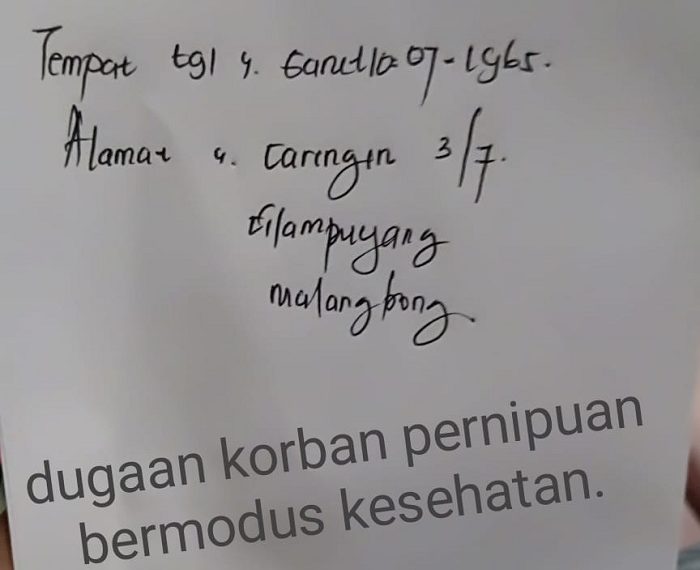 Tempat tgl : Garut 10-07-1965.
Alamat : Caringin 3/7.
Cilampuyang
malangbong.
dugaan korban pernipuan
bermodus kesehatan.